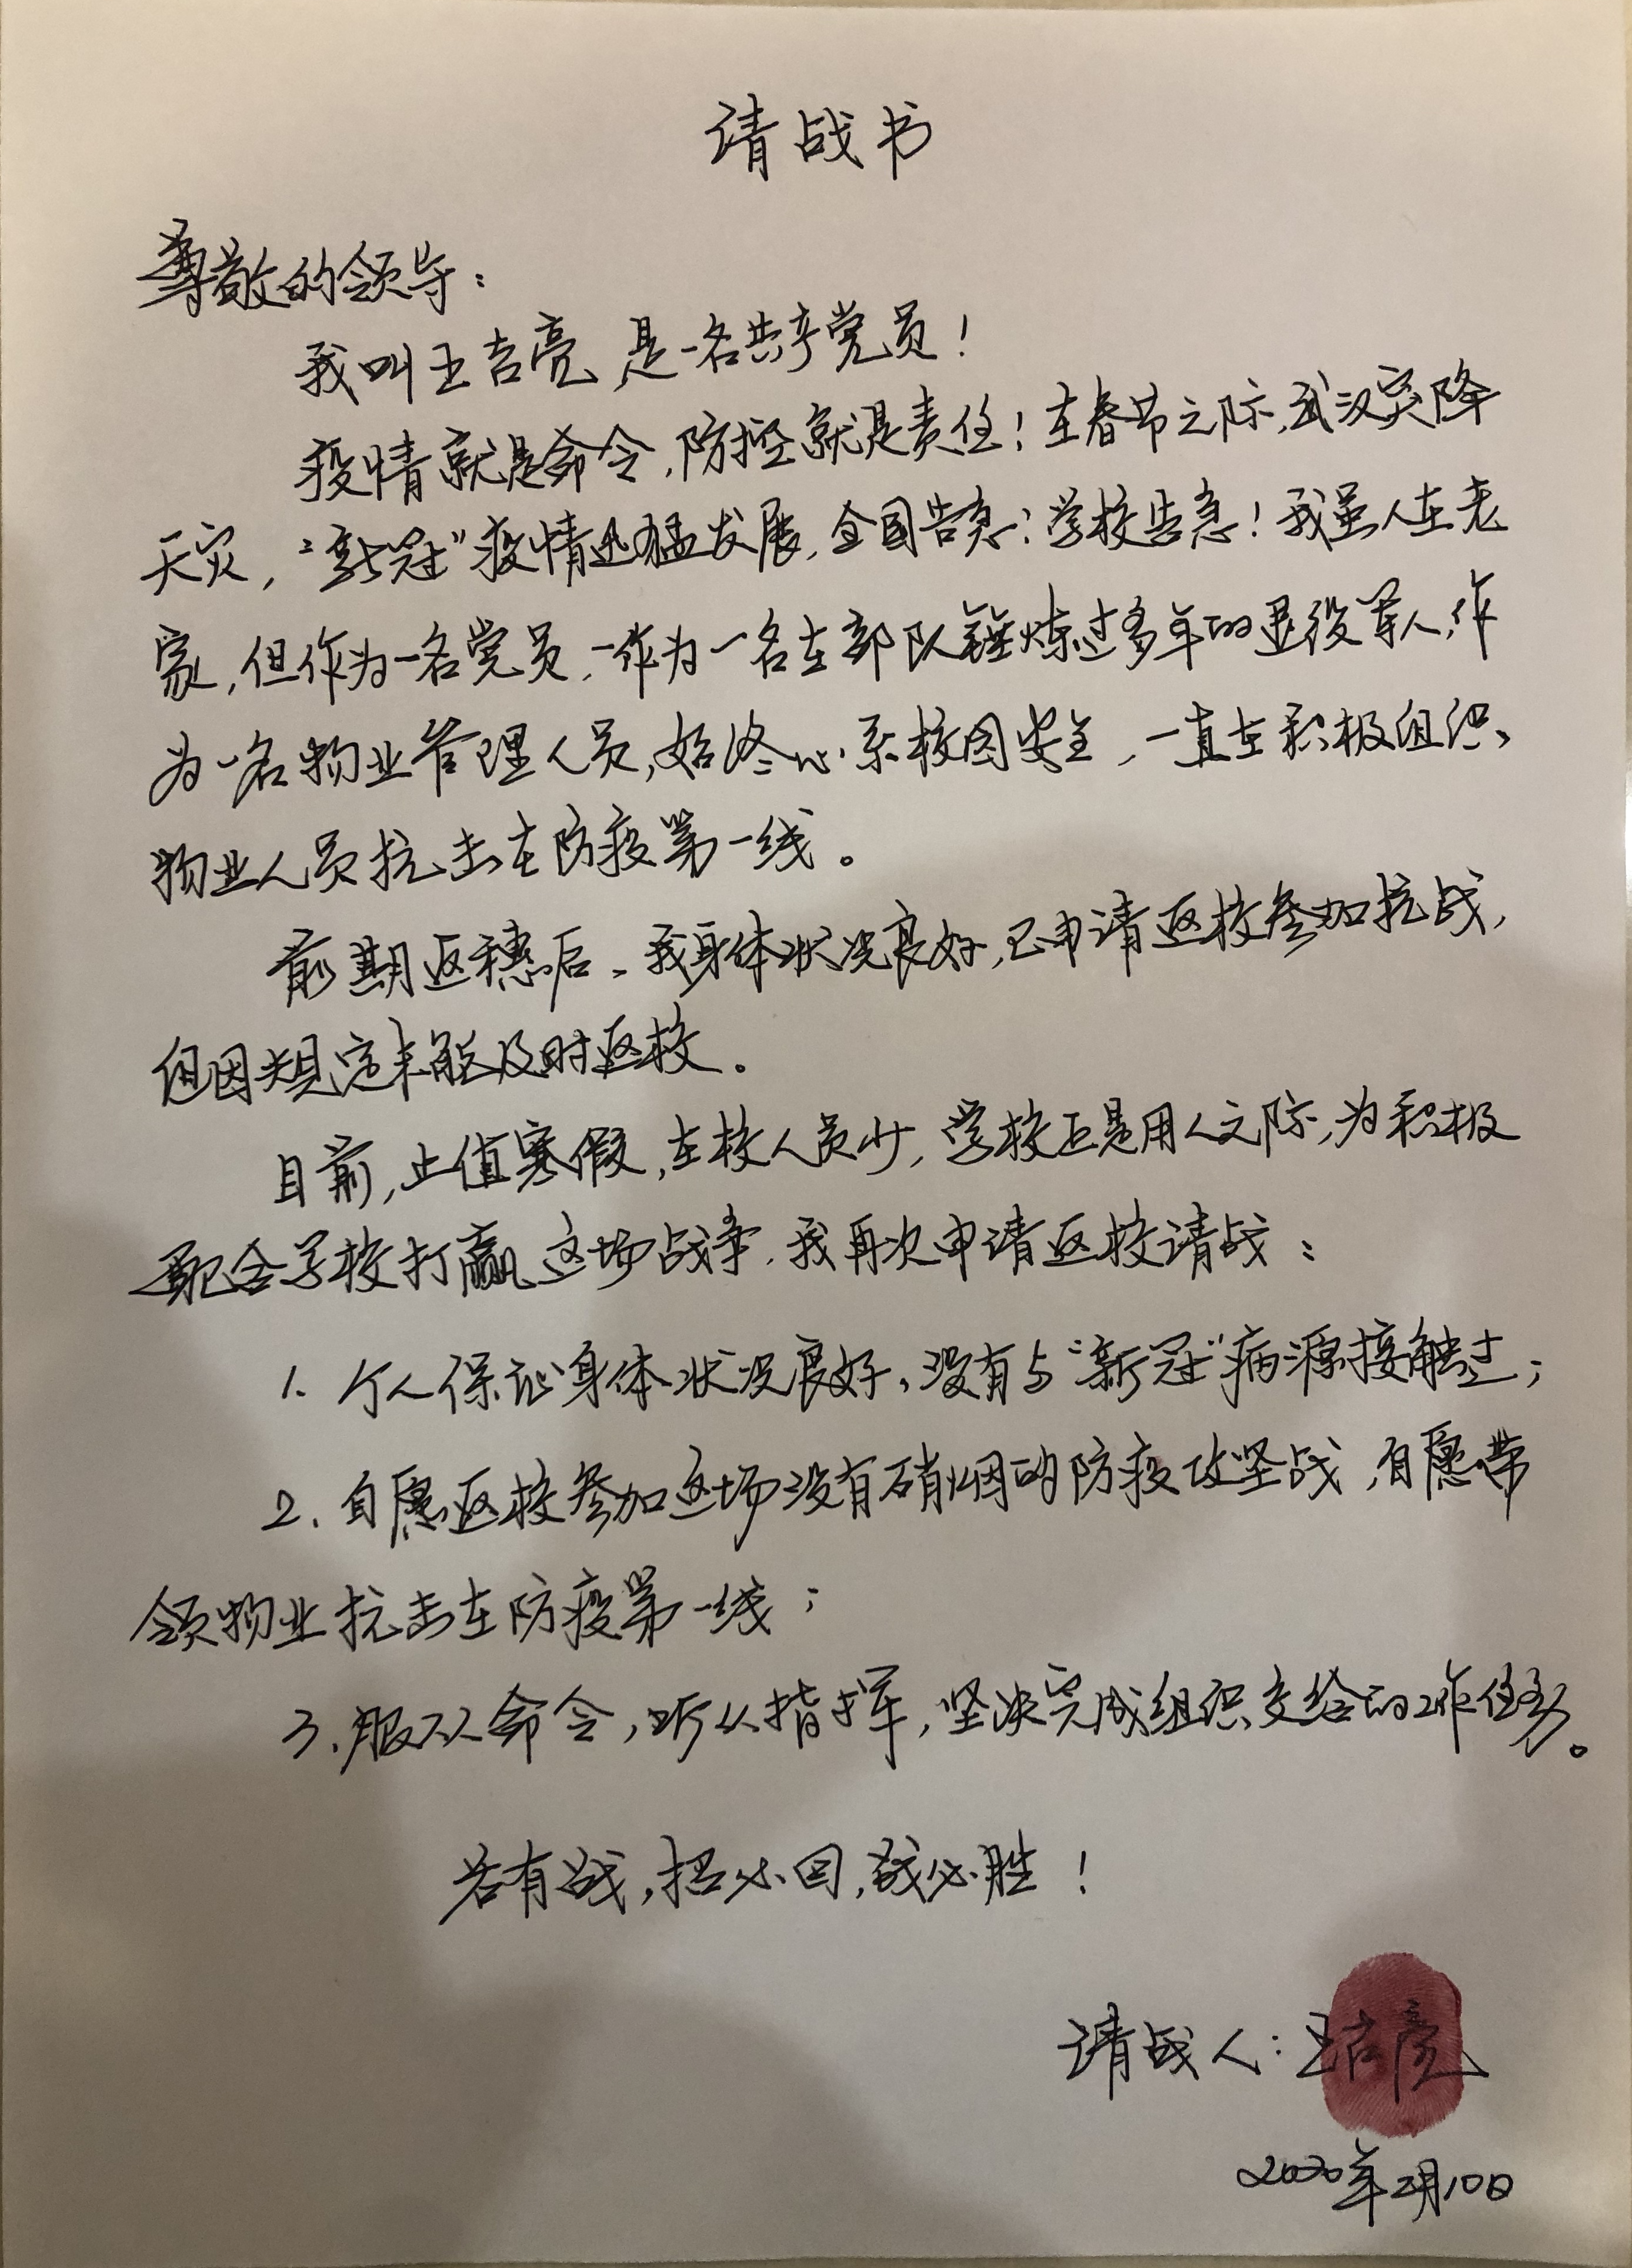 请战书
尊敬的领导：
我叫王吉亮，是一名共产党员！
疫情就是命令，防控就是责任！在春节之际，武汉突降
天灾，“新冠”疫情迅猛发展，全国告急！学校告急！我虽人在老
家，但作为一名党员，作为一名在部队锤炼过多年的退役军人，作
为一名物业管理人员，始终心系校园安全，一直在积极组织
物业人员抗击在防疫第一线。
前期返穗后，我身体状况良好，已申请返校参加抗战，
但因规定未能及时返校。
目前，正值寒假，在校人员少，学校正是用人之际，为积极
配合学校打赢这场战争，我再次申请返校请战：
1. 个人保证身体状况良好，没有与“新冠”病源接触过；
2. 自愿返校参加这场没有硝烟的防疫攻坚战，自愿带
领物业抗击在防疫第一线；
3. 服从命令，听从指挥，坚决完成组织交给的工作任务。
若有战，招必回，战必胜！
请战人：王吉亮
2020年2月10日